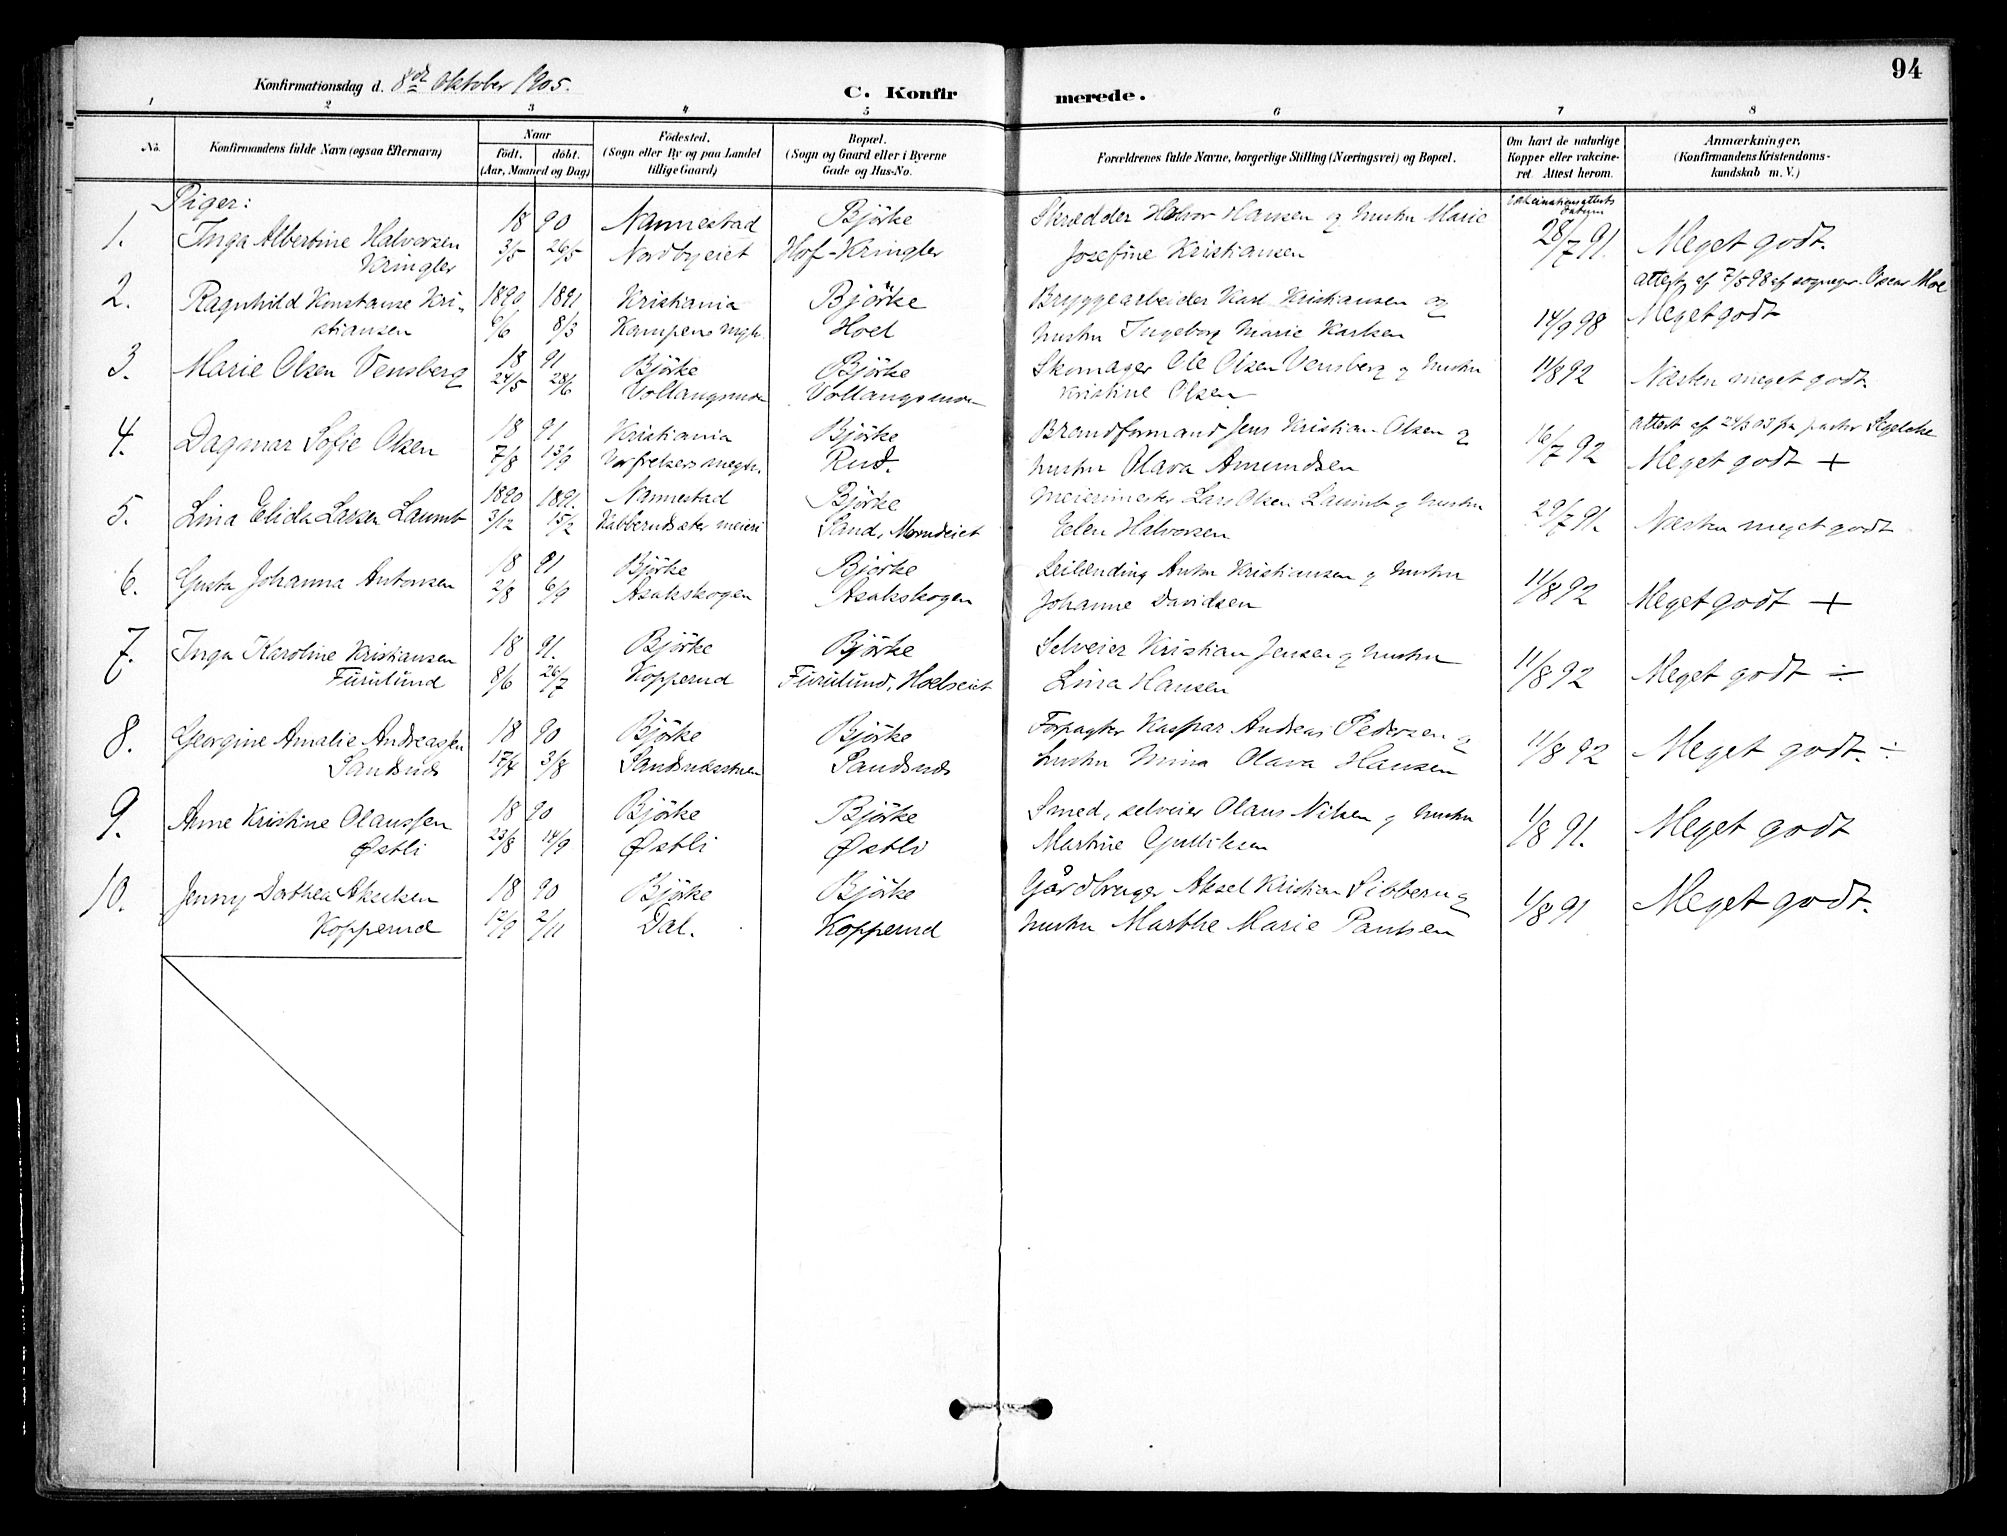 94
Konfirmationsdag d. 8de Oktober 1905.
C. Konfirmerede.
1 2 3 4 5 6 7 8
No.
Konfirmandens fulde Navn (ogsaa Efternavn)
Naar
født. døbt.
(Aar, Maaned og Dag)
Fødested.
(Sogn eller By og paa Landet
tillige Gaard)
Bopæl.
(Sogn og Gaard eller i Byerne
Gade og Hus-No.
Forældrenes fulde Navne, borgerlige Stilling (Næringsvei) og Bopæl.
Om havt de naturlige
Kopper eller vakcine-
ret. Attest herom.
Anmærkninger.
(Konfirmandens Kristendoms-
kundskab m. V.)
Piger:
Vakcinationsattests
datum
1. Inga Albertine Halvorsen 18 90 Nannestad Bjørke Skrædder Halvor Hansen og hustru Marie 28/7 91. Meget godt.
Kringler 3/5 26/5 Nordbyeiet Hof-Kringler Josefine Kristiansen
attest af 7/5 98 af sognepr. Oscar Moe
2. Ragnhild Konstanse Kri- 1890 1891 Kristiania Bjørke Bryggearbeider Karl Kristiansen og 14/9 98 Meget godt
stiansen 6/6 8/3 Kampens mgh. Hoel hustru Ingeborg Marie Karlsen
3. Marie Olsen Vensberg 18 91 Bjørke Bjørke Skomager Ole Olsen Vensberg og hustru 11/8 92 Næsten meget godt.
24/5 28/6 Vollaugsmoen Vollaugsmoen Kristine Olsen
attest af 24/3 03 fra pastor
4. Dagmar Sofie Olsen 18 91 Kristiania Bjørke Brandformand Jens Kristian Olsen og 16/7 92 Meget godt +
7/8 13/9 Vorfrelsers megh. Rud. hustru Olava Amundsen
5. Lina Elida Larsen Laumb 1890 1891. Nannestad Bjørke Meierimester Lars Olsen Laumb og hustru 29/7 91. Næsten meget godt
3/12 15/2 meieri Sand, Elen Halvorsen
6. Gusta Johanna Antonsen 18 91 Bjørke Bjørke Leilending Anton Kristiansen og hustru 11/8 92 Meget godt +
2/8 6/9 Asakskogen Asakskogen Johanne Davidsen
7. Inga Karoline Kristiansen 18 91. Bjørke Bjørke Selveier Kristian Jensen og hustru 11/8 92 Meget godt ÷
Furulund 8/6 26/7 Kopperud Furulund, Hoelseiet Lina Hansen
8. Georgine Amalie Andreassen 18 90 Bjørke Bjørke Forpagter Kaspar Andreas Pedersen og 11/8 92 Meget godt. ÷
Sandsnes 17/4 3/8 Sandsnes hustru Mina Olava Hansen
9. Anne Kristine Olaussen 18 90 Bjørke Bjørke Smed, selveier Olaus Nilsen og hustru 1/8 91. Meget godt
Østli 23/8 14/9 Østli Østli Martine Gulliksen
10. Jenny Dorthea Akselsen 18 90 Bjørke Bjørke Gårdbruger Aksel Kristian Sibbern og 1/8 91 Meget godt.
Kopperud 12/9 2/11 Dal. Kopperud hustru Marthe Marie Paulsen